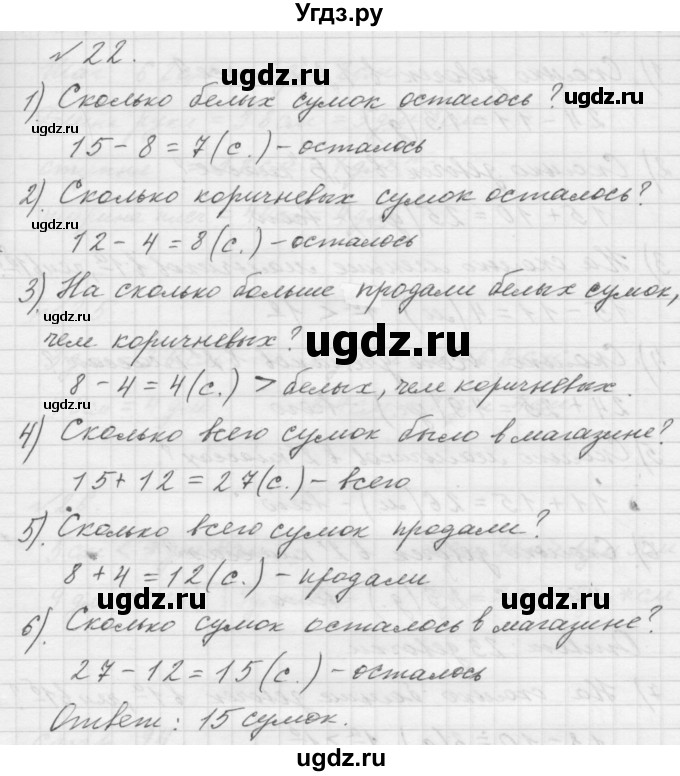 Угдз.ру
№22.
1) Сколько белых сумок осталось?
15 - 8 = 7 (с.) - осталось
2) Сколько коричневых сумок осталось?
12 - 4 = 8 (с.) - осталось
3) На сколько больше продали белых сумок,
чем коричневых?
8 - 4 = 4 (с.) > белых, чем коричневых.
4) Сколько всего сумок было в магазине?
15 + 12 = 27 (с.) - всего
5) Сколько всего сумок продали?
8 + 4 = 12 (с.) - продали
6) Сколько сумок осталось в магазине?
27 - 12 = 15 (с.) - осталось
Ответ: 15 сумок.
ugdz.ru
ugdz.ru
ugdz.ru
ugdz.ru
ugdz.ru
ugdz.ru
ugdz.ru
ugdz.ru
ugdz.ru
ugdz.ru
ugdz.ru
ugdz.ru
ugdz.ru